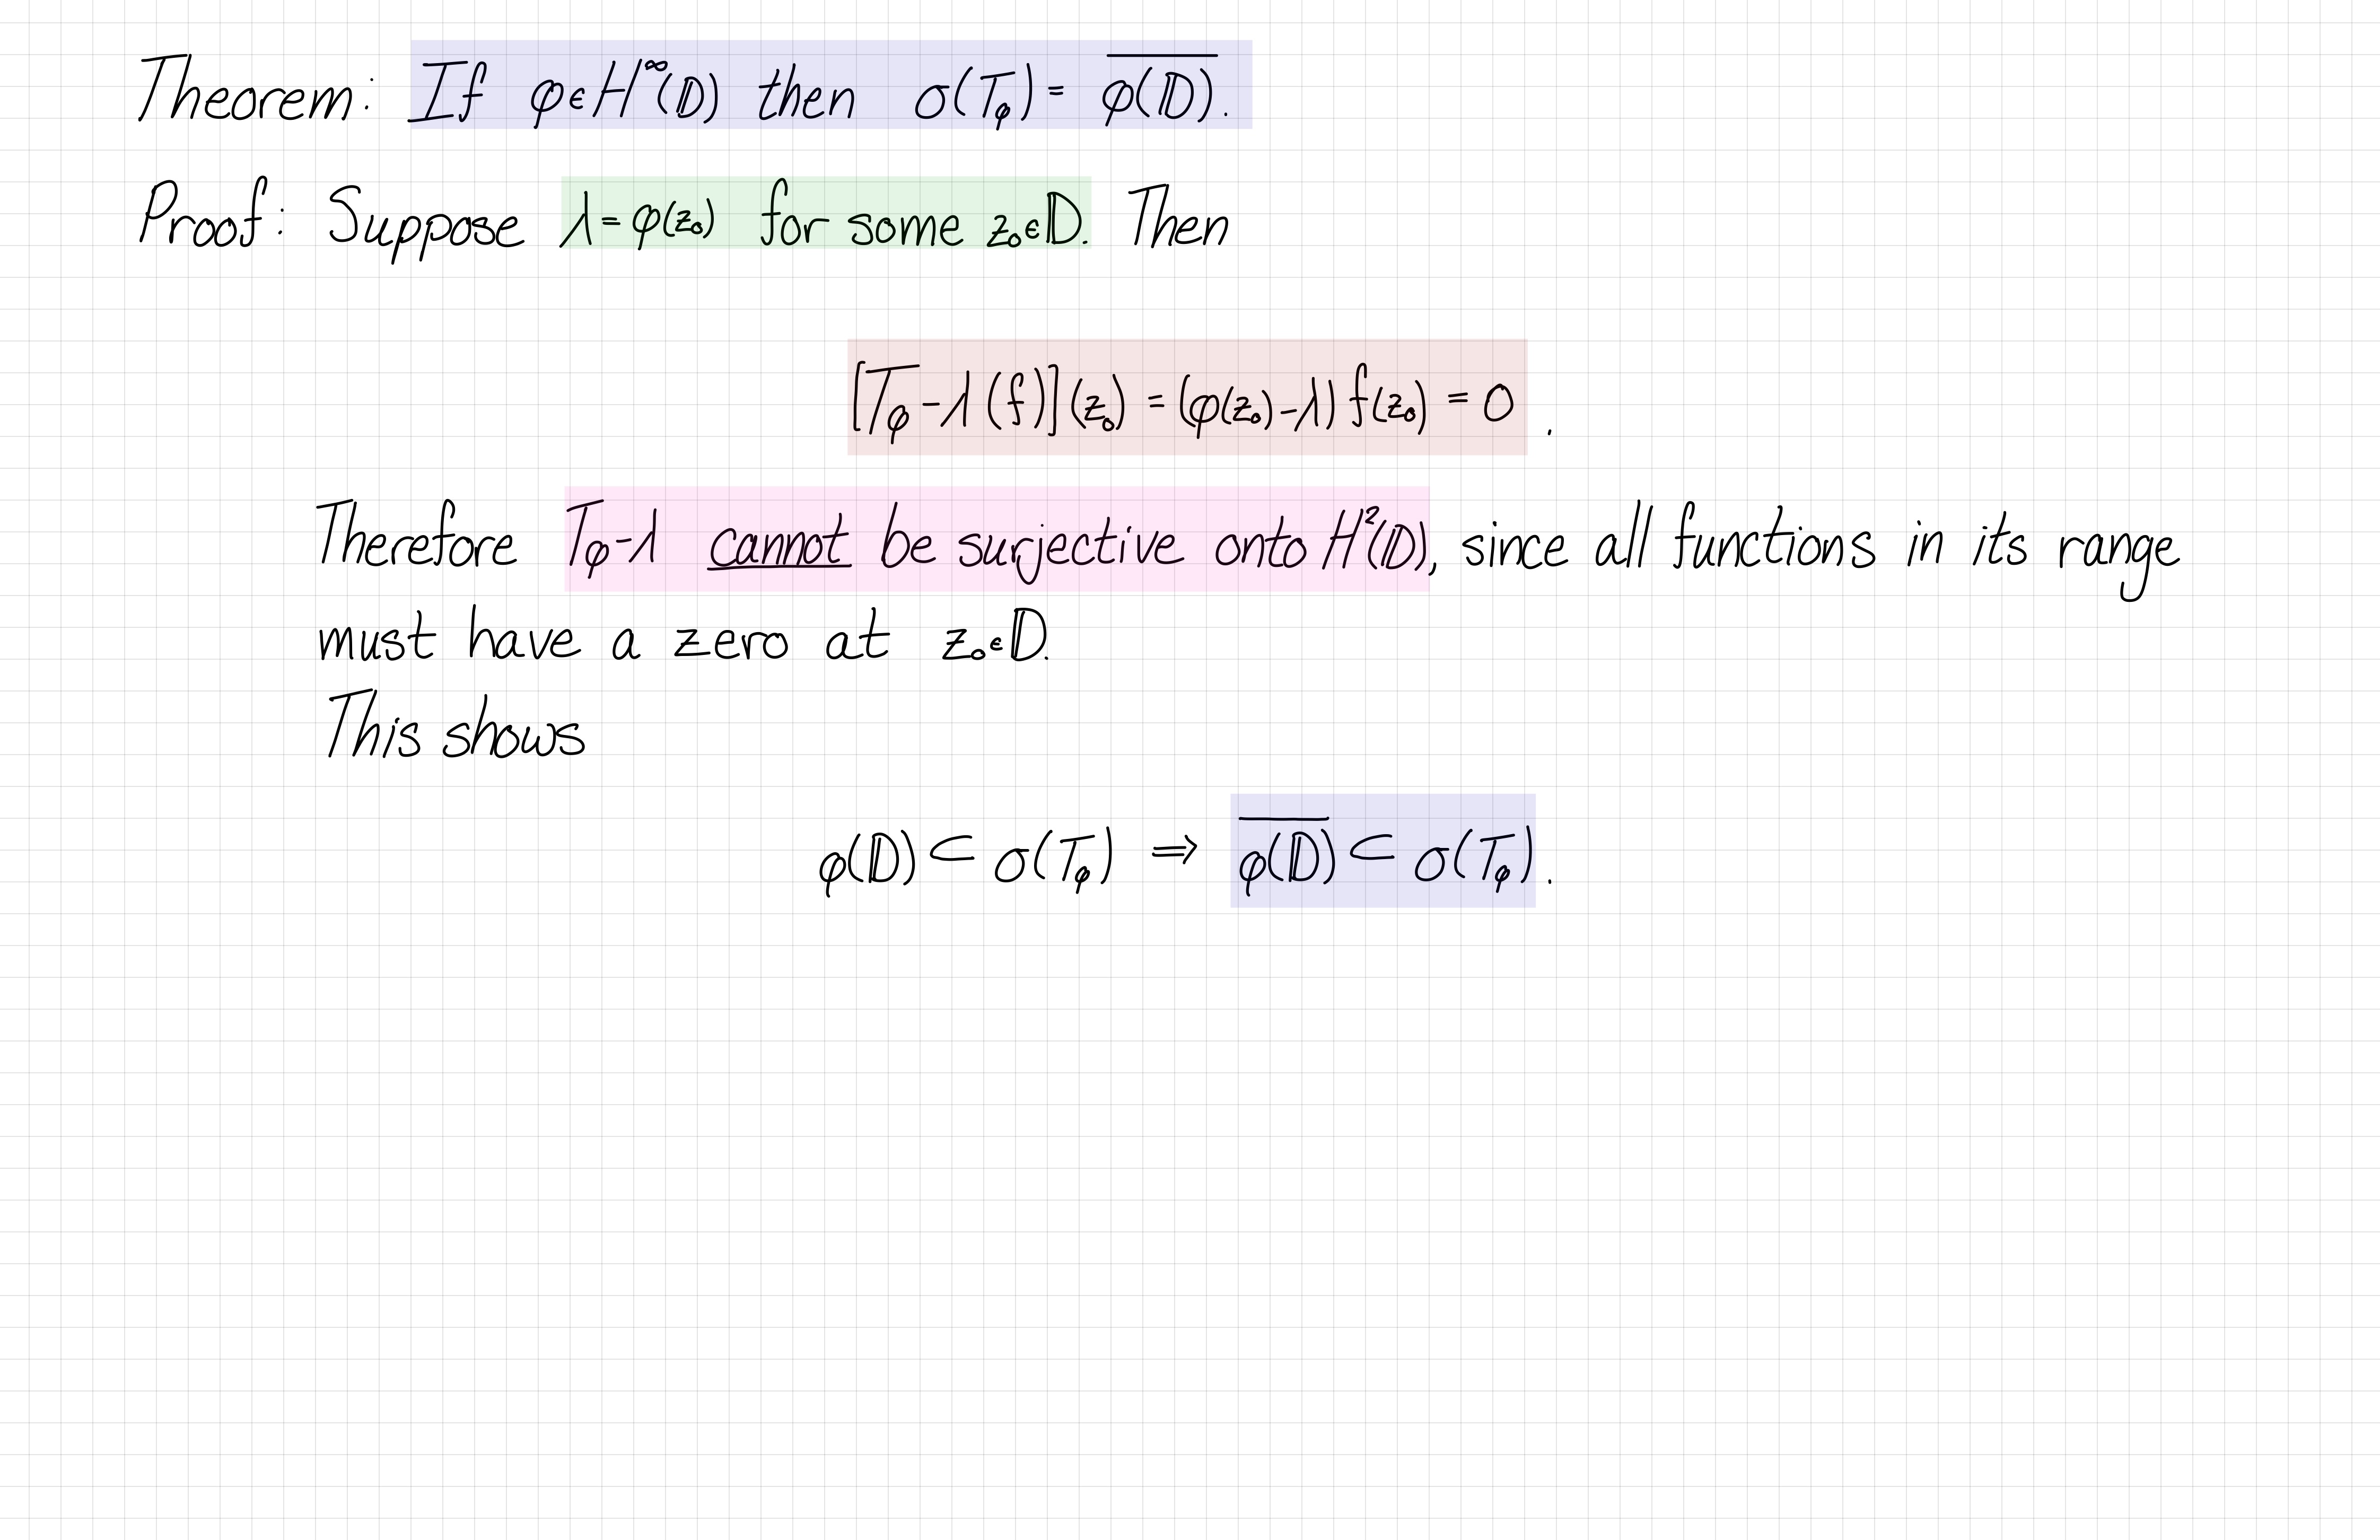 Theorem: If φ∈H^∞(𝔻) then σ(T_φ) = \overline{φ(𝔻)}.
Proof: Suppose λ = φ(z₀) for some z₀∈𝔻. Then
[T_φ - λ (f)](z₀) = (φ(z₀) - λ) f(z₀) = 0 .
Therefore T_φ - λ cannot be surjective onto H²(𝔻), since all functions in its range
must have a zero at z₀∈𝔻.
This shows
φ(𝔻) ⊂ σ(T_φ) ⇒ \overline{φ(𝔻)} ⊂ σ(T_φ).